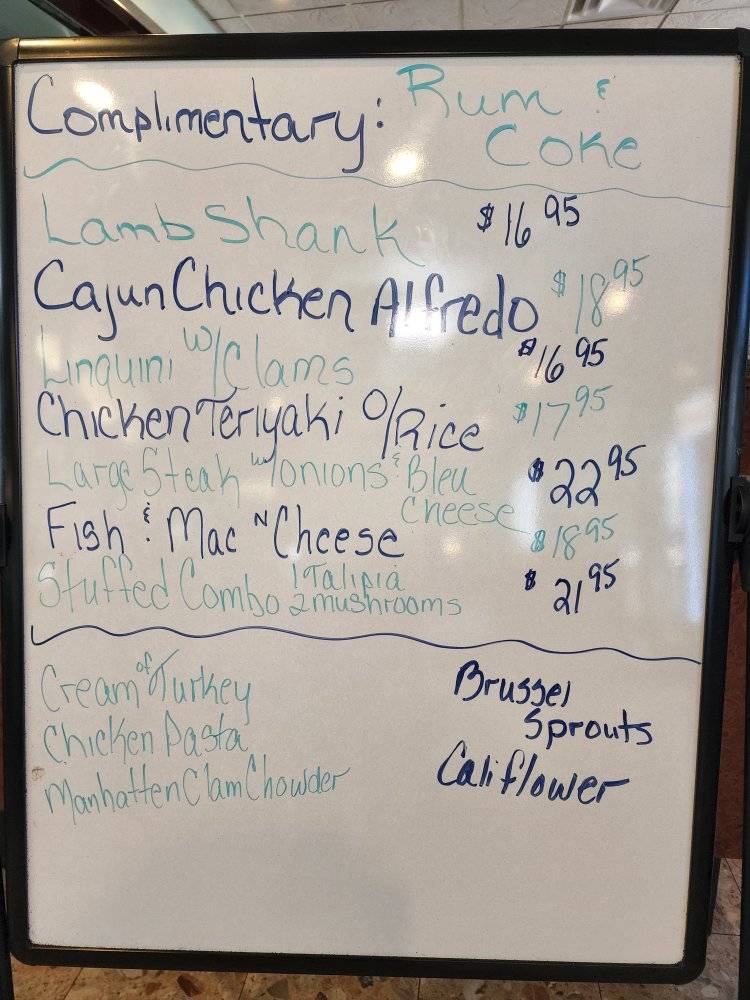 Complimentary: Rum &
Coke
Lamb Shank $16 95
Cajun Chicken Alfredo $18 95
Linquini w/Clams $16 95
Chicken Teriyaki O/Rice $17 95
Large Steak w/onions & Bleu
Cheese $22 95
Fish & Mac N Cheese $18 95
Stuffed Combo 1 Talipia
2 mushrooms $21 95
Cream of Turkey
Chicken Pasta
Manhatten Clam Chowder
Brussel
Sprouts
Califlower